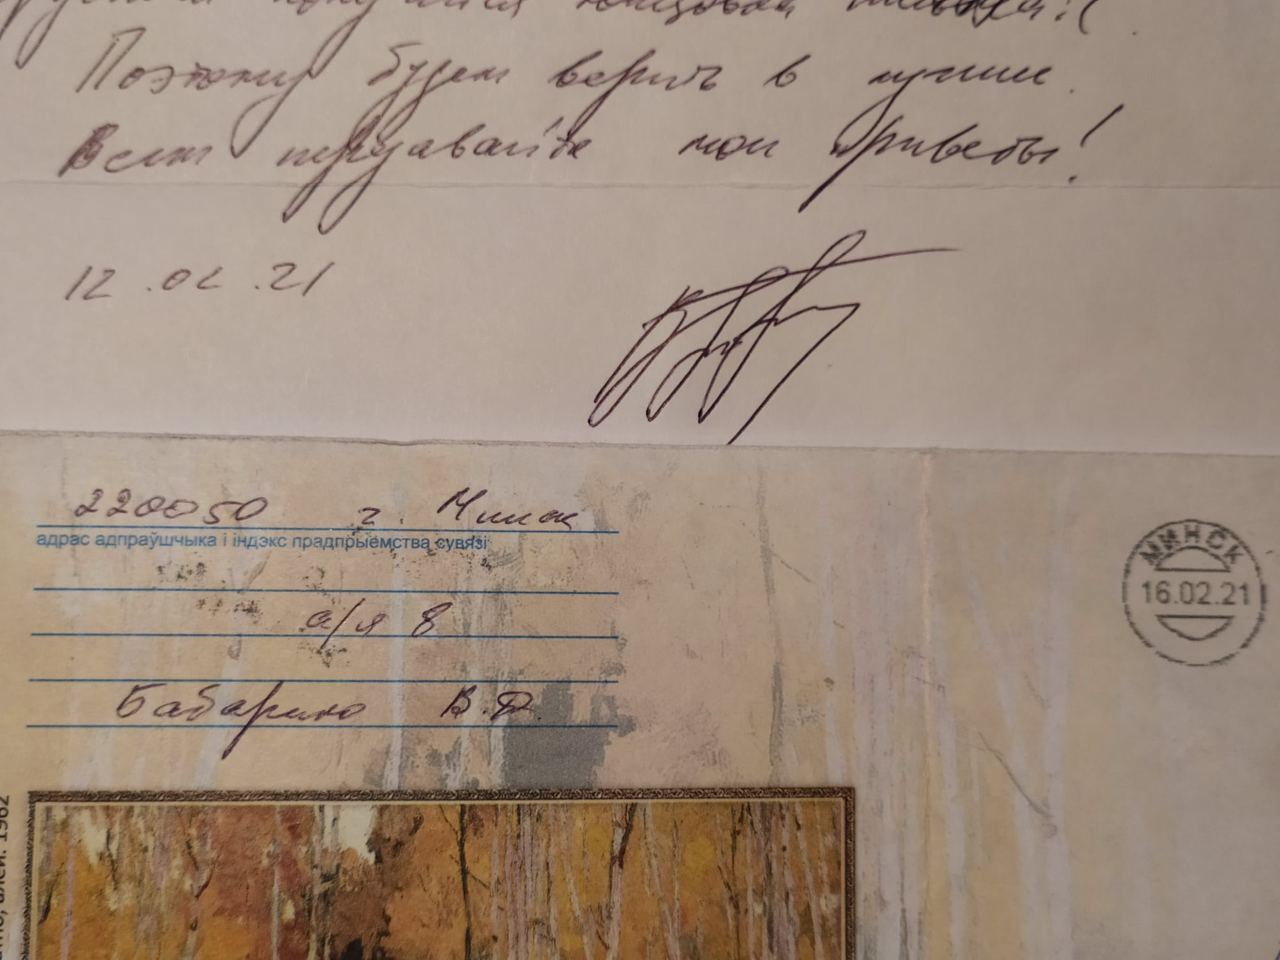 получился концовка письма :(
Поэтому будем верить в лучшее.
Всем передавайте мои приветы!
12.02.21
220050 г. Минск
адрас адпраўшчыка і індэкс прадпрыемства сувязі
а/я 8
Бабарико В.Д.
МИНСК
16.02.21
алей. 1962